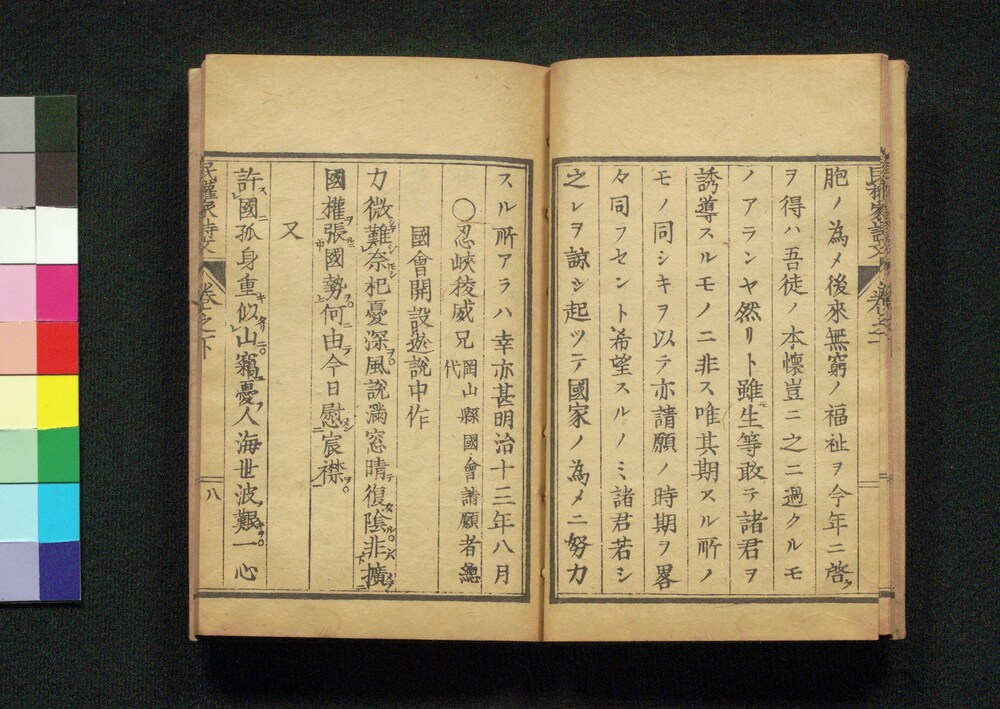 胞ノ為メ後來無窮ノ福祉ヲ今年ニ啓ク
ヲ得ハ吾徒ノ本懷豈ニ之ニ過クルモ
ノアランヤ然リト雖モ生等敢テ諸君ヲ
誘導スルモノニ非ス唯其期スル所ノ
モノ同シキヲ以テ亦請願ノ時期ヲ畧
々同フセント希望スルノミ諸君若シ
之レヲ諒シ起ツテ國家ノ為メニ努力
スル所アラハ幸亦甚明治十三年八月
○忍峽稜威兄 岡山縣國會請願者總代
國會開設遊說中作
力微難奈杞憂深風說滿窓晴復陰非擴
國權張國勢何由今日慰宸襟
又
許國孤身重似山竊憂人海世波艱一心
民權家詩文
卷之下
八